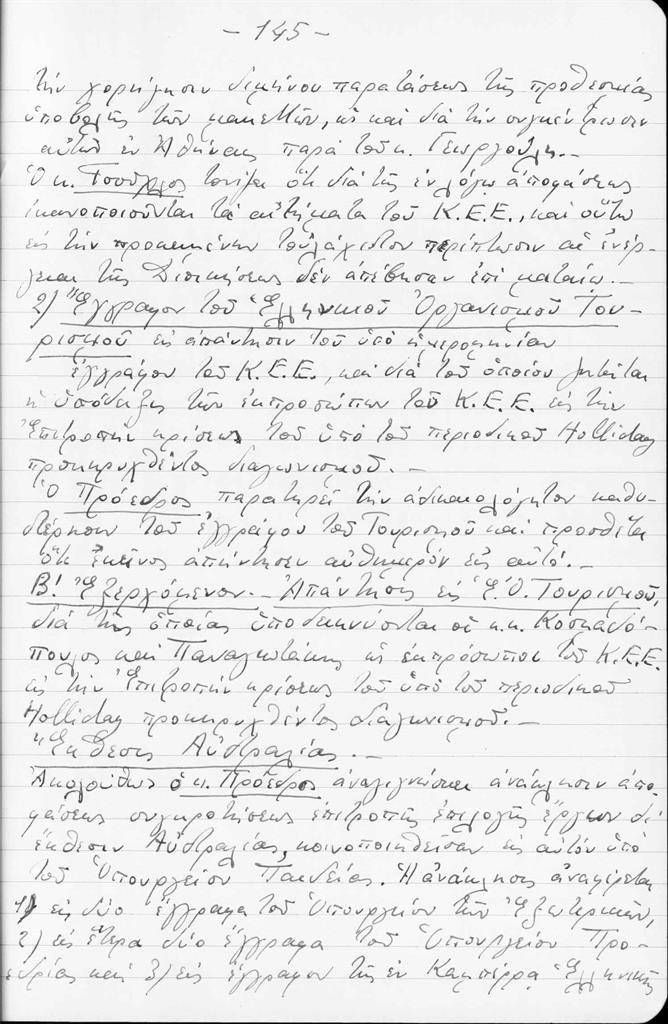 - 145 -
τὴν χορήγησιν διμήνου παρατάσεως τῆς προθεσμίας
ὑποβολῆς τῶν μακεττῶν, ὡς καὶ διὰ τὴν συγκέντρωσιν
αὐτῶν ἐν Ἀθήναις παρὰ τοῦ κ. Γεωργούλη.-
Ὁ κ. Γσοῦρλος τονίζει ὅτι διὰ τῆς ἐν λόγῳ ἀποφάσεως
ἱκανοποιοῦνται τὰ αἰτήματα τοῦ Κ.Ε.Ε., καὶ οὕτω
εἰς τὴν προκειμένην τοὐλάχιστον περίπτωσιν αἱ ἐνέρ-
γειαι τῆς Διοικήσεως δὲν ἀπέβησαν ἐπὶ ματαίῳ.-
2) Ἔγγραφον τοῦ Ἑλληνικοῦ Ὀργανισμοῦ Του-
ρισμοῦ εἰς ἀπάντησιν τοῦ ὑπὸ ἡμερομηνίαν
ἐγγράφου τοῦ Κ.Ε.Ε., καὶ διὰ τοῦ ὁποίου ζητεῖται
ἡ ὑπόδειξις τῶν ἐκπροσώπων τοῦ Κ.Ε.Ε. εἰς τὴν
Ἐπιτροπὴν κρίσεως τοῦ ὑπὸ τοῦ περιοδικοῦ Holliday
προκηρυχθέντος διαγωνισμοῦ.-
Ὁ Πρόεδρος παρατηρεῖ τὴν ἀδικαιολόγητον καθυ-
στέρησιν τοῦ ἐγγράφου τοῦ Τουρισμοῦ καὶ προσθέτει
ὅτι ἐκεῖνος ἀπήντησεν αὐθημερὸν εἰς αὐτό.-
Β! Ἐξερχόμενον.- Ἀπάντησις εἰς Ἑ.Ο. Τουρισμοῦ,
διὰ τῆς ὁποίας ὑποδεικνύονται οἱ κ.κ. Κοσμαδό-
πουλος καὶ Παναγιωτάκης ὡς ἐκπρόσωποι τοῦ Κ.Ε.Ε.
εἰς τὴν Ἐπιτροπὴν κρίσεως τοῦ ὑπὸ τοῦ περιοδικοῦ
Holliday προκηρυχθέντος διαγωνισμοῦ.-
Ἔκθεσις Αὐστραλίας.-
Ἀκολούθως ὁ κ. Πρόεδρος ἀναγιγνώσκει ἀνάκλησιν ἀπο-
φάσεως συγκροτήσεως ἐπιτροπῆς ἐπιλογῆς ἔργων δι'
ἔκθεσιν Αὐστραλίας, κοινοποιηθεῖσαν εἰς αὐτὸν ὑπὸ
τοῦ Ὑπουργείου Παιδείας. Ἡ ἀνάκλησις ἀναφέρεται
1) εἰς δύο ἔγγραφα τοῦ Ὑπουργείου τῶν Ἐξωτερικῶν,
2) εἰς ἕτερα δύο ἔγγραφα τοῦ Ὑπουργείου Προ-
εδρίας καὶ 3) εἰς ἔγγραφον τῆς ἐν Καμπέρρᾳ Ἑλληνικῆς